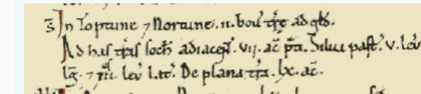 S In Toptune ⁊ Nortune. ii. bou tr̃e ad gld̃.
Ad has tr̃as soch̃ adiacent. vii. ac̃ p̃ti. Silua past̃. v. leu
lg̃. ⁊ iii. leu lat̃. De plana tr̃a. lx. ac̃.